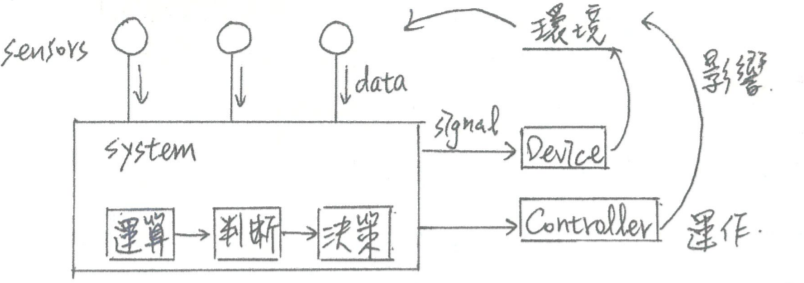 sensors
data
環境
影響.
system
signal
Device
運算
判斷
決策
Controller
運作.